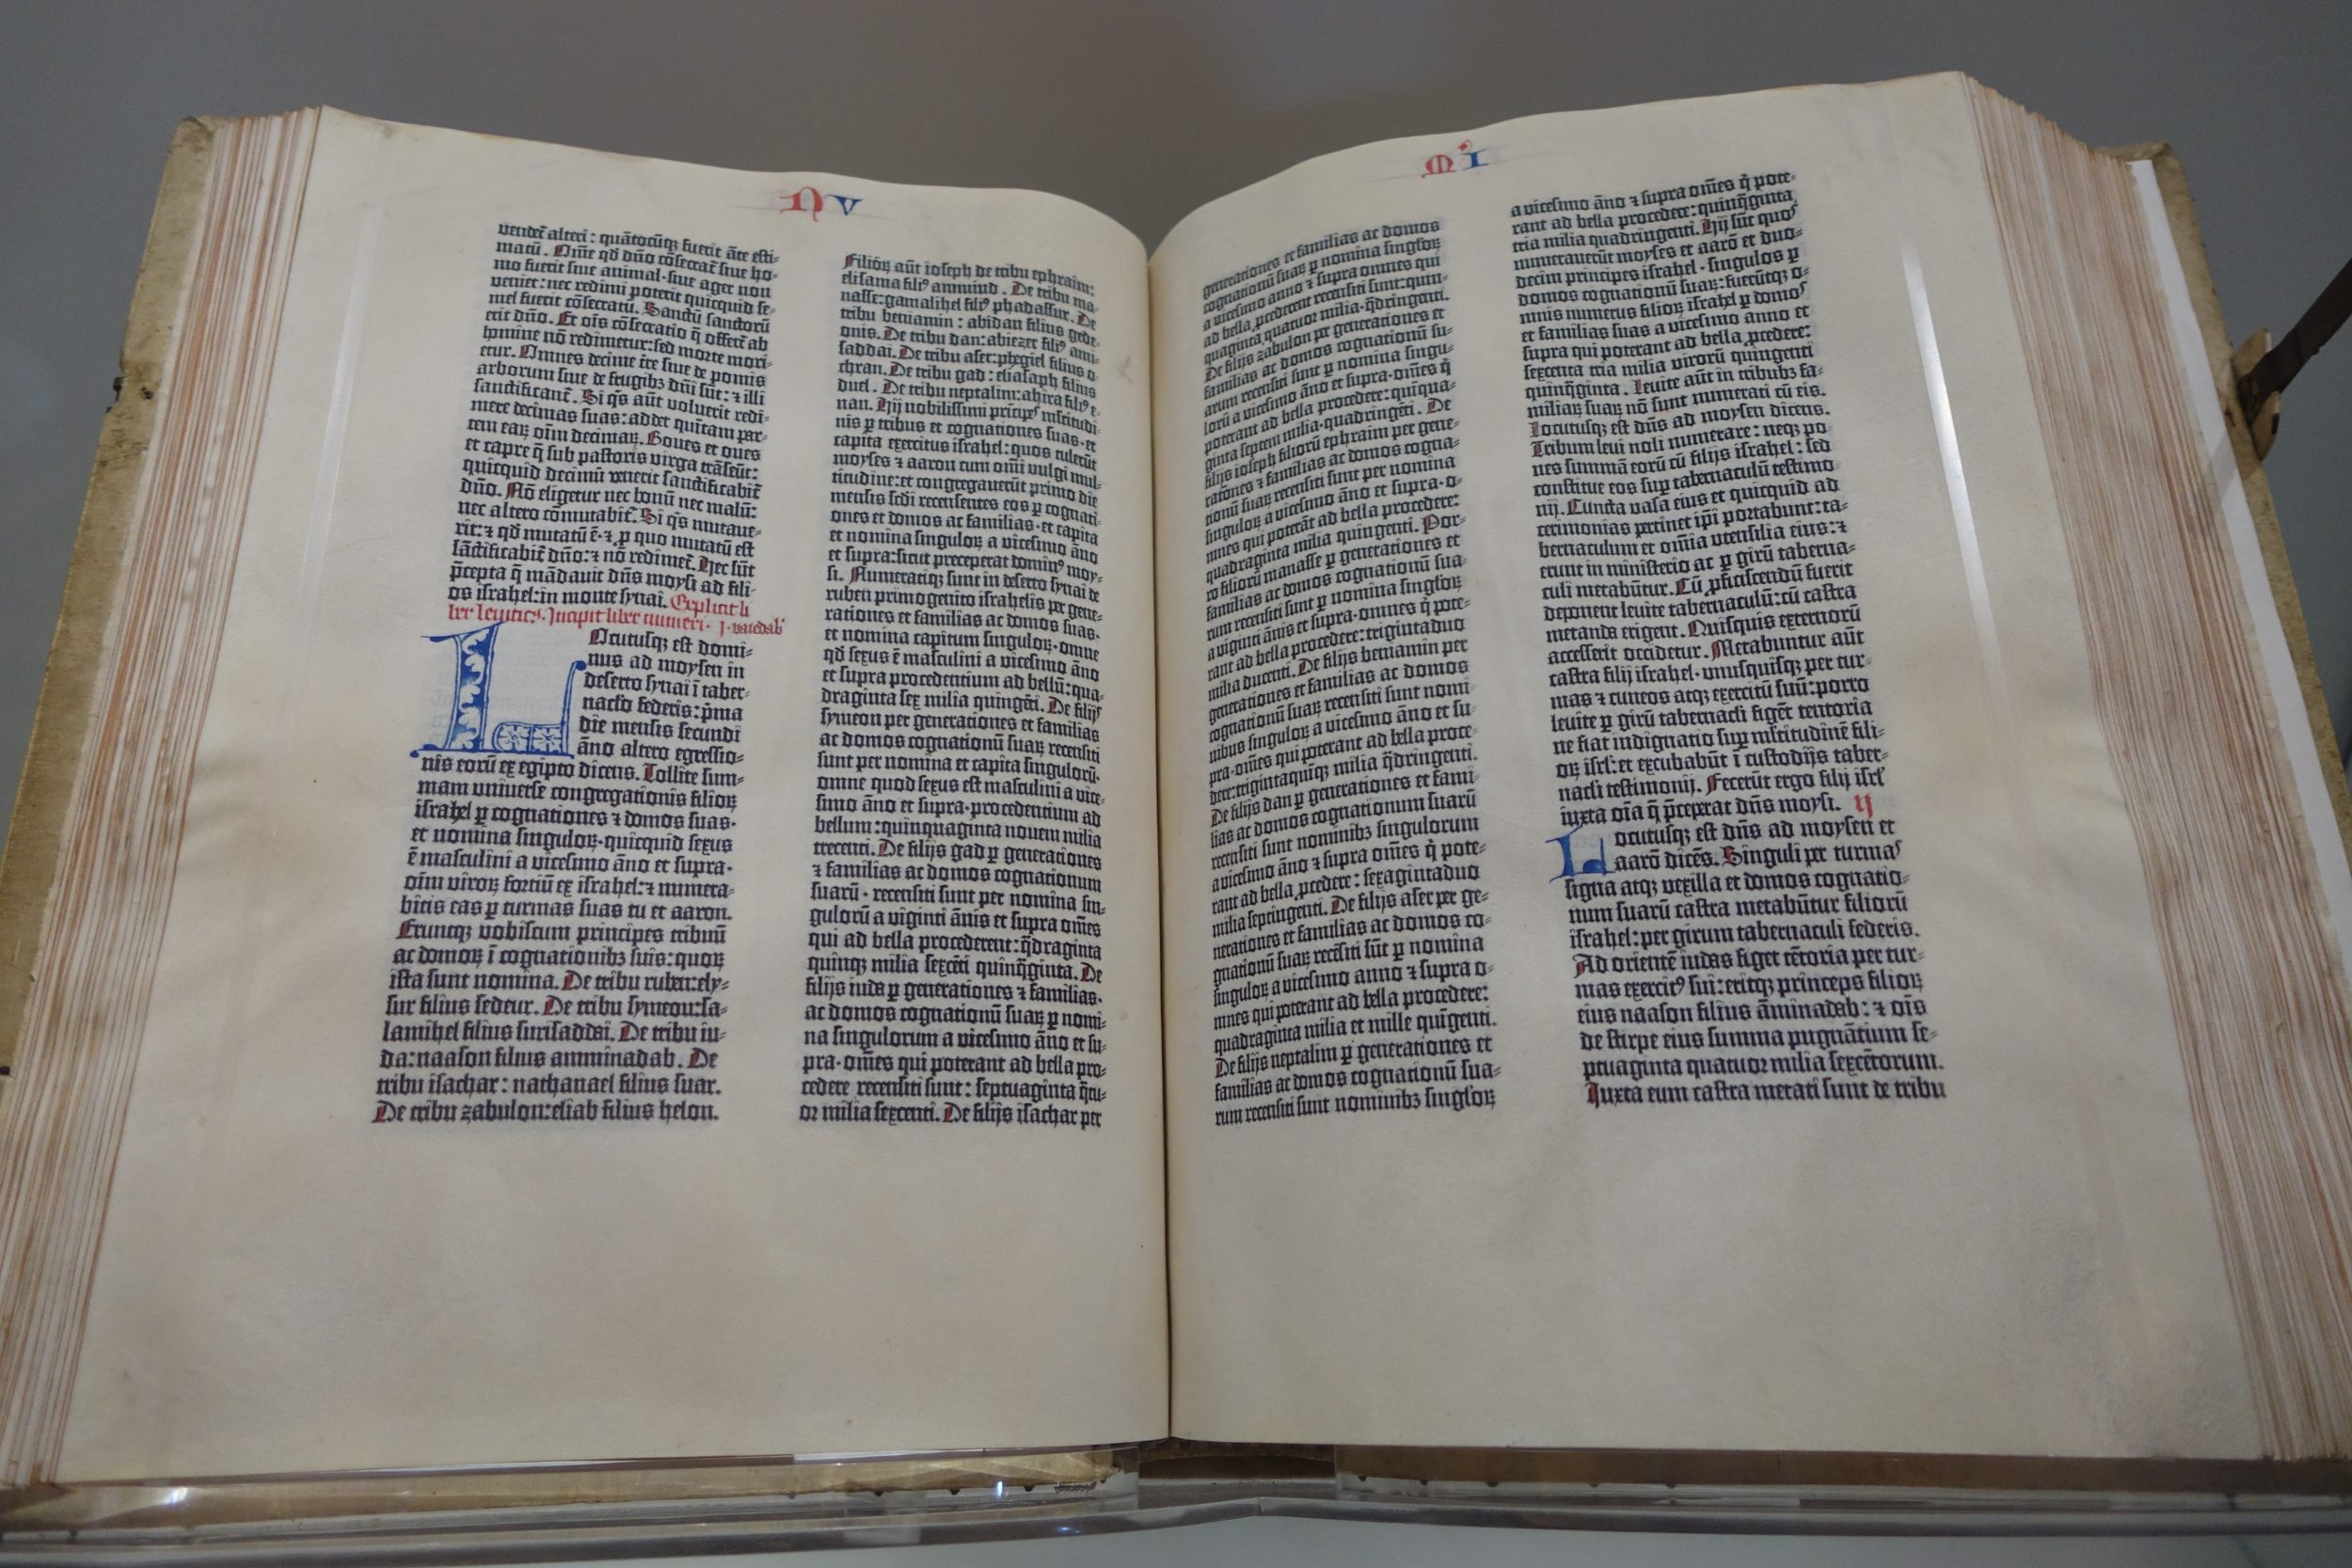 NV
vendet̃ alteri : quãtocũqꝫ fuerit ãte esti⸗
matũ . Om̃e qḋ dño cõsecrat̃ siue ho⸗
mo fuerit siue animal · siue ager non
veniet : nec redimi poterit quicquid se⸗
mel fuerit cõsecratũ . Sanctũ sanctorũ
erit dño . Et oĩs cõsecratio q̃ offert̃ ab
homine nõ redimetur : sed morte mori⸗
etur . Omnes decime t̃re siue de pomis
arborum siue de frugibꝫ dñi sũt : ⁊ illi
sanctificant̃ . Si q̇s aũt voluerit redi⸗
mere decimas suas : addet quĩtam par⸗
tem eaꝝ oĩm decimaꝝ . Boues et oues
et capre q̃ sub pastoris virga trãseũt :
quicquid decimũ venerit sanctificabit̃
dño . Nõ eligetur nec bonũ nec malũ :
nec altero cõmutabit̃ . Si q̇s mutaue⸗
rit : ⁊ qḋ mutatũ ẽ · ⁊ ꝑ quo mutatũ est
sãctificabit̃ dño : ⁊ nõ redimet̃ . Hec sũt
p̃cepta q̃ mãdauit dñs moysi ad fili⸗
os israhel : in monte synai . Explicit li
ber leuitic⁹ . Incipit liber numeri .
Locutusqꝫ est domi⸗
nus ad moysen in
deserto synai ĩ taber⸗
naclo federis : p̃ma
die mensis secundi
ãno altero egressio⸗
nis eorũ ex egipto dicens . Tollite sum⸗
mam vniuerse congregationis filioꝝ
israhel ꝑ cognationes ⁊ domos suas ·
et nomina singuloꝝ · quicquid sexus
ẽ masculini a vicesimo ãno et supra ·
oĩm viroꝝ fortiũ ex israhel : ⁊ numera⸗
bitis eas ꝑ turmas suas tu et aaron .
Eruntqꝫ vobiscum principes tribuũ
ac domoꝝ ĩ cognationibꝫ suis : quoꝝ
ista sunt nomina . De tribu ruben : ely⸗
sur filius sedeur . De tribu symeon : sa⸗
lamihel filius surisaddai . De tribu iu⸗
da : naason filius amminadab . De
tribu isachar : nathanael filius suar .
De tribu zabulon : eliab filius helon .
Filioꝝ aũt ioseph de tribu ephraim :
elisama fili⁹ ammiud . De tribu ma⸗
nasse : gamalihel fili⁹ phadassur . De
tribu beniamin : abidan filius gede⸗
onis . De tribu dan : abiezer fili⁹ ami⸗
saddai . De tribu aser : phegiel filius o⸗
chran . De tribu gad : eliasaph filius
duel . De tribu neptalim : ahira fili⁹ e⸗
nan . Hij nobilissimi prĩcipes ml̃titudi⸗
nis ꝑ tribus et cognationes suas · et
capita exercitus israhel : quos tulerũt
moyses ⁊ aaron cum om̃i vulgi mul⸗
titudine : et congregauerũt primo die
mensis sc̃di recensentes eos ꝑ cognati⸗
ones et domos ac familias · et capita
et nomina singuloꝝ a vicesimo ãno
et supra : sicut preceperat domin⁹ moy⸗
si . Numeratiqꝫ sunt in deserto synai de
ruben primogenito israhelis per gene⸗
rationes et familias ac domos suas ·
et nomina capitum singuloꝝ · omne
qḋ sexus ẽ masculini a vicesimo ãno
et supra procedentium ad bellũ : qua⸗
draginta sex milia quingẽti . De filijs
symeon per generationes et familias
ac domos cognationũ suaꝝ recensiti
sunt per nomina et capita singulorũ ·
omne quod sexus est masculini a vice⸗
simo ãno et supra · procedentium ad
bellum : quinquaginta nouem milia
trecenti . De filijs gad ꝑ generationes
⁊ familias ac domos cognationum
suarũ · recensiti sunt per nomina sin⸗
gulorũ a viginti ãnis et supra om̃es
qui ad bella procederent : q̃draginta
quinqꝫ milia sexcẽti quinq̃ginta . De
filijs iuda ꝑ generationes ⁊ familias ·
ac domos cognationũ suaꝝ ꝑ nomi⸗
na singulorum a vicesimo ãno et su⸗
pra · om̃es qui poterant ad bella pro⸗
cedere recensiti sunt : septuaginta q̃tu⸗
or milia sexcenti . De filijs isachar per
MĨ
generationes et familias ac domos
cognationũ suaꝝ ꝑ nomina singl̃oꝝ
a vicesimo anno ⁊ supra omnes qui
ad bella ꝓcederent recensiti sunt : quin⸗
quaginta quatuor milia · q̃dringenti .
De filijs zabulon per generationes et
familias ac domos cognationũ su⸗
arum recensiti sunt ꝑ nomina singu⸗
lorũ a vicesimo ãno et supra · om̃es q̇
poterant ad bella procedere : quĩqua⸗
ginta septem milia · quadringẽti . De
filijs ioseph filiorũ ephraim per gene⸗
rationes ⁊ familias ac domos cogna⸗
tionũ suaꝝ recensiti sunt per nomina
singuloꝝ a vicesimo ãno et supra · o⸗
mnes qui poterãt ad bella procedere :
quadraginta milia quingenti . Por⸗
ro filiorũ manasse ꝑ generationes et
familias ac domos cognationũ sua⸗
rum recensiti sunt ꝑ nomina singl̃oꝝ
a viginti ãnis et supra · omnes q̇ pote⸗
rant ad bella procedere : trigintaduo
milia ducenti . De filijs beniamin per
generationes et familias ac domos
cognationũ suaꝝ recensiti sunt nomi⸗
nibus singuloꝝ a vicesimo ãno et su⸗
pra · om̃es qui poterant ad bella proce⸗
dere : trigintaquinqꝫ milia q̃dringenti .
De filijs dan ꝑ generationes et fami⸗
lias ac domos cognationum suarũ
recensiti sunt nominibꝫ singulorum
a vicesimo ãno ⁊ supra om̃es q̇ pote⸗
rant ad bella ꝓcedere : sexagintaduo
milia septingenti . De filijs aser per ge⸗
nerationes et familias ac domos co⸗
gnationũ suaꝝ recẽsiti sũt ꝑ nomina
singuloꝝ a vicesimo anno ⁊ supra o⸗
mnes qui poterant ad bella procedere :
quadraginta milia et mille quĩgenti .
De filijs neptalim ꝑ generationes et
familias ac domos cognationũ sua⸗
rum recensiti sunt nominibꝫ singl̃oꝝ
a vicesimo ãno ⁊ supra om̃es q̇ pote⸗
rant ad bella procedere : quinq̃ginta
tria milia quadringenti . Hij sũt quos
numerauerũt moyses et aarõ et duo⸗
decim principes israhel · singulos ꝑ
domos cognationũ suaꝝ : fuerũtqꝫ o⸗
mnis numerus filioꝝ israhel ꝑ domos
et familias suas a vicesimo anno et
supra qui poterant ad bella ꝓcedere :
sexcenta tria milia virorũ quingenti
quinq̃ginta . Leuite aũt in tribubꝫ fa⸗
miliaꝝ suaꝝ nõ sunt numerati cũ eis .
Locutusqꝫ est dñs ad moysen dicens .
Tribum leui noli numerare : neqꝫ po
nes summã eorũ cũ filijs israhel : sed
constitue eos suꝑ tabernaculũ testimo⸗
nij . Cuncta vasa eius et quicquid ad
cerimonias ꝑtinet ip̃i portabunt : ta⸗
bernaculum et om̃ia vtensilia eius : ⁊
erunt in ministerio ac ꝑ girũ taberna⸗
culi metabũtur . Cũ ꝓficiscendũ fuerit
deponent leuite tabernaculũ : cũ castra
metanda erigent . Quisquis externorũ
accesserit occidetur . Metabuntur aũt
castra filij israhel · vnusquisqꝫ per tur⸗
mas ⁊ cuneos atqꝫ exercitũ suũ : porro
leuite ꝑ girũ tabernacli figẽt tentoria
ne fiat indignatio suꝑ ml̃titudinẽ fili⸗
oꝝ isrl̃ : et excubabũt ĩ custodijs taber⸗
nacli testimonij . Fecerũt ergo filij isrl̃
iuxta oĩa q̃ p̃ceperat dñs moysi . ij
Locutusqꝫ est dñs ad moysen et
aarõ dicẽs . Singuli per turmas
signa atqꝫ vexilla et domos cognatio⸗
num suarũ castra metabũtur filiorũ
israhel : per girum tabernaculi federis .
Ad orientẽ iudas figet tẽtoria per tur⸗
mas exercit⁹ sui : eritqꝫ princeps filioꝝ
eius naason filius ãminadab : ⁊ oĩs
de stirpe eius summa pugnãtium se⸗
ptuaginta quatuor milia sexcẽtorum .
Iuxta eum castra metati sunt de tribu